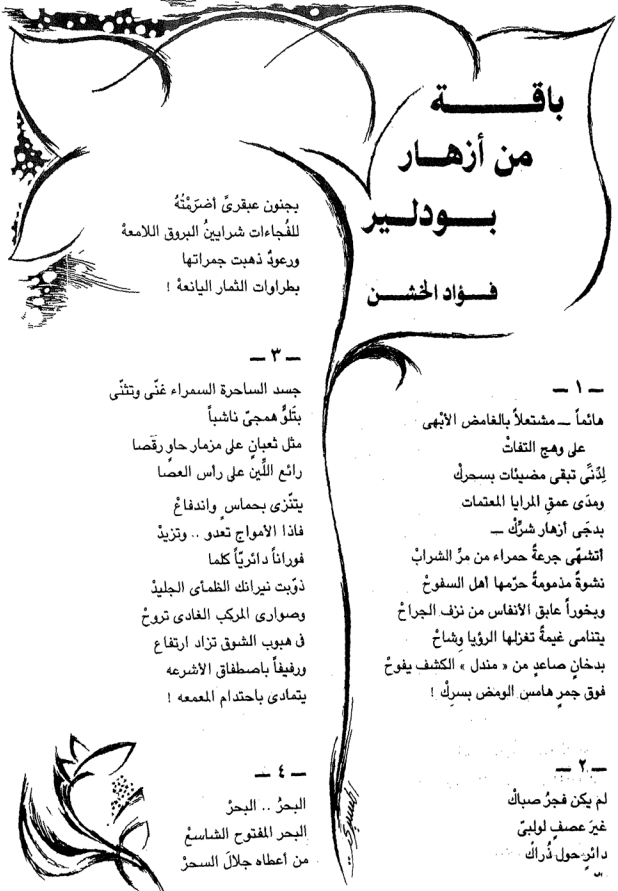 باقــة
من أزهــار
بــودلــير
فــؤاد الخشــن
ــ ١ ــ
هائماً ــ مشتعلاً بالغامض الأبْهى
على وهج التفاتْ
لِدُنىً تبقى مضيئات بسحركْ
ومدَى عمقِ المرايا المعتمات
بدجَى أزهار شرِّكْ ــ
أتشهّى جرعةً حمراء من مرِّ الشرابْ
نشوةً مذمومةً حرّمها أهل السفوحْ
وبخوراً عابق الأنفاس من نزف الجراحْ
يتنامى غيمةً تغزلها الرؤيا وِشاحْ
بدخانٍ صاعدٍ من « مندل » الكشف يفوحْ
فوق جمرٍ هامس الومض بسركْ !
ــ ٢ ــ
لم يكن فجرُ صباكْ
غيرَ عصفٍ لولبىّ
دائرٍ حول ذُراكْ
بجنون عبقرىّ أضرَمْتْهُ
للفُجاءات شرايينُ البروق اللامعهْ
ورعودٌ ذهبت جمراتها
بطراوات الثمار اليانعهْ !
ــ ٣ ــ
جسد الساحرة السمراء غنّى وتثنّى
بتَلوٍّ همجىّ ناشباً
مثل ثعبانٍ على مزمار حاوٍ رقَصا
رائع اللِّين على رأس العصا
يتنّزى بحماسٍ واندفاعْ
فاذا الأمواج تعدو .. وتزيدْ
فوراناً دائريّاً كلما
ذوّبت نيرانك الظمأى الجليدْ
وصوارى المركب الغادى تروحْ
فى هبوب الشوق تزاد ارتفاع
ورفيفاً باصطفاق الأشرعه
يتمادى باحتدام المعمعه !
ــ ٤ ــ
البحرُ .. البحرْ
البحر المفتوح الشاسعْ
من أعطاه جلالَ السحرْ